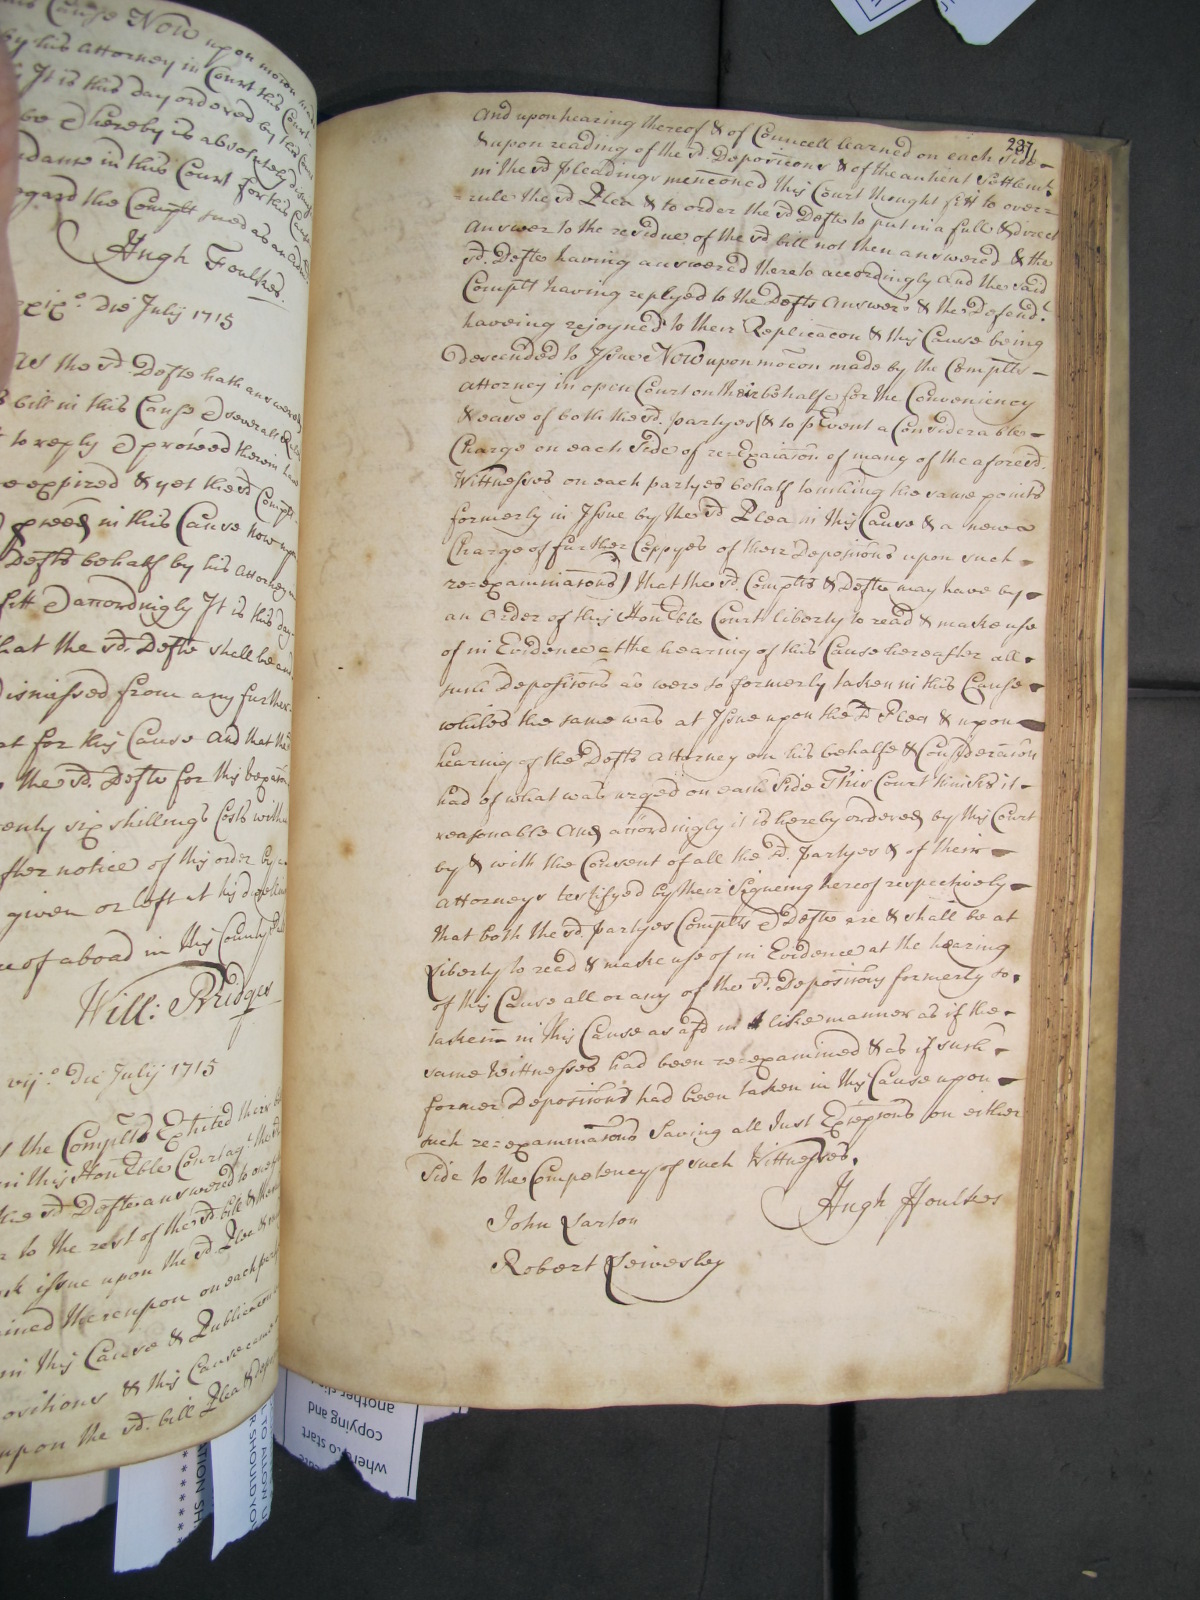 this Cause Now upon mocon made
by his Attorney in Court this Court
It is this day ordered by this Court
be & hereby is absolutely dismiss
in this Court for this Cause
regard the Complt sued as an
Hugh Foulkes.
Die July 1715
the sd. Defte hath answered
bill in this Cause & severall Rules
to reply & proceed therein have
expired & yet the sd Complt
proceed in this Cause Now upon
Defts behalf by his Attorney in
fitt & accordingly It is this day
that the sd. Defte shall be and
dismissed from any further
for this Cause And that the
the sd. Defte for this vexation
twenty six shillings Costs within
after notice of this order by a
given or left at his dwelling
of aboad in this County Pall
Will: Bridges
vij.º Die July 1715
the Complts Exhited their bill
in this Honrble Court agt. the sd
the sd Defte answered to one part
to the rest of the sd bill & their
issue upon the sd. Plea &
thereupon on each part
in this Cause & Publication
ositions & this Cause came
upon the sd. bill Plea & Depo
237
And upon hearing thereof & of Councell learned on each side
& upon reading of the sd. Deposicons & of the antient Settlemt.
in the sd pleadings mencõned this Court thought fitt to over=
=rule the sd Plea & to order the sd Defte to put in a full & direct
Answer to the residue of the sd bill not then answered & the
sd. Defte having answered thereto accordingly And the said
Complt having replyed to the Defts Answer & the Defendt.
haveing rejoyned to their Replicacon & this Cause being
Descended to Issue Now upon mocon made by the Complts
Attorney in open Court on their behalfe for the Conveniency
& ease of both the sd. partyes (& to prevent a Considerable
Charge on each Side of re=Exaiacõn of many of the aforesd.
Wittnesses on each partyes behalf touching the same points
formerly in Issue by the sd Plea in this Cause & a new
Charge of further Coppyes of their Depositions upon such
re=exammiacõns) that the sd. Complts & Defte may have by
an Order of this Honrble Court liberty to read & make use
of in Evidence at the hearing of this Cause hereafter all
such Depositions as were so formerly taken in this Cause
whiles the same was at Issue upon the sd Plea & upon
hearing of the Defts Attorney on his behalfe & Consideracõn
had of what was urged on each Side This Court thinks it
reasonable And accordingly it is hereby ordered by this Court
by & with the Consent of all the sd. partyes & of their
Attorneys testifyed by their Signeing hereof respectively
that both the sd. partyes Complts & Defte are & shall be at
Liberty to read & make use of in Evidence at the hearing
of this Cause all or any of the sd. Depositions formerly so
taken in this Cause as afd in like manner as if the
same Wittnesses had been re=examined & as if such
former Depositions had been taken in this Cause upon
such re=exammiacõns Saving all Just Excepcõns on either
Side to the Competency of such Wittnesses.
Hugh Ffoulkes
John Larton
Robert Leivesley
where to start
copying and
another